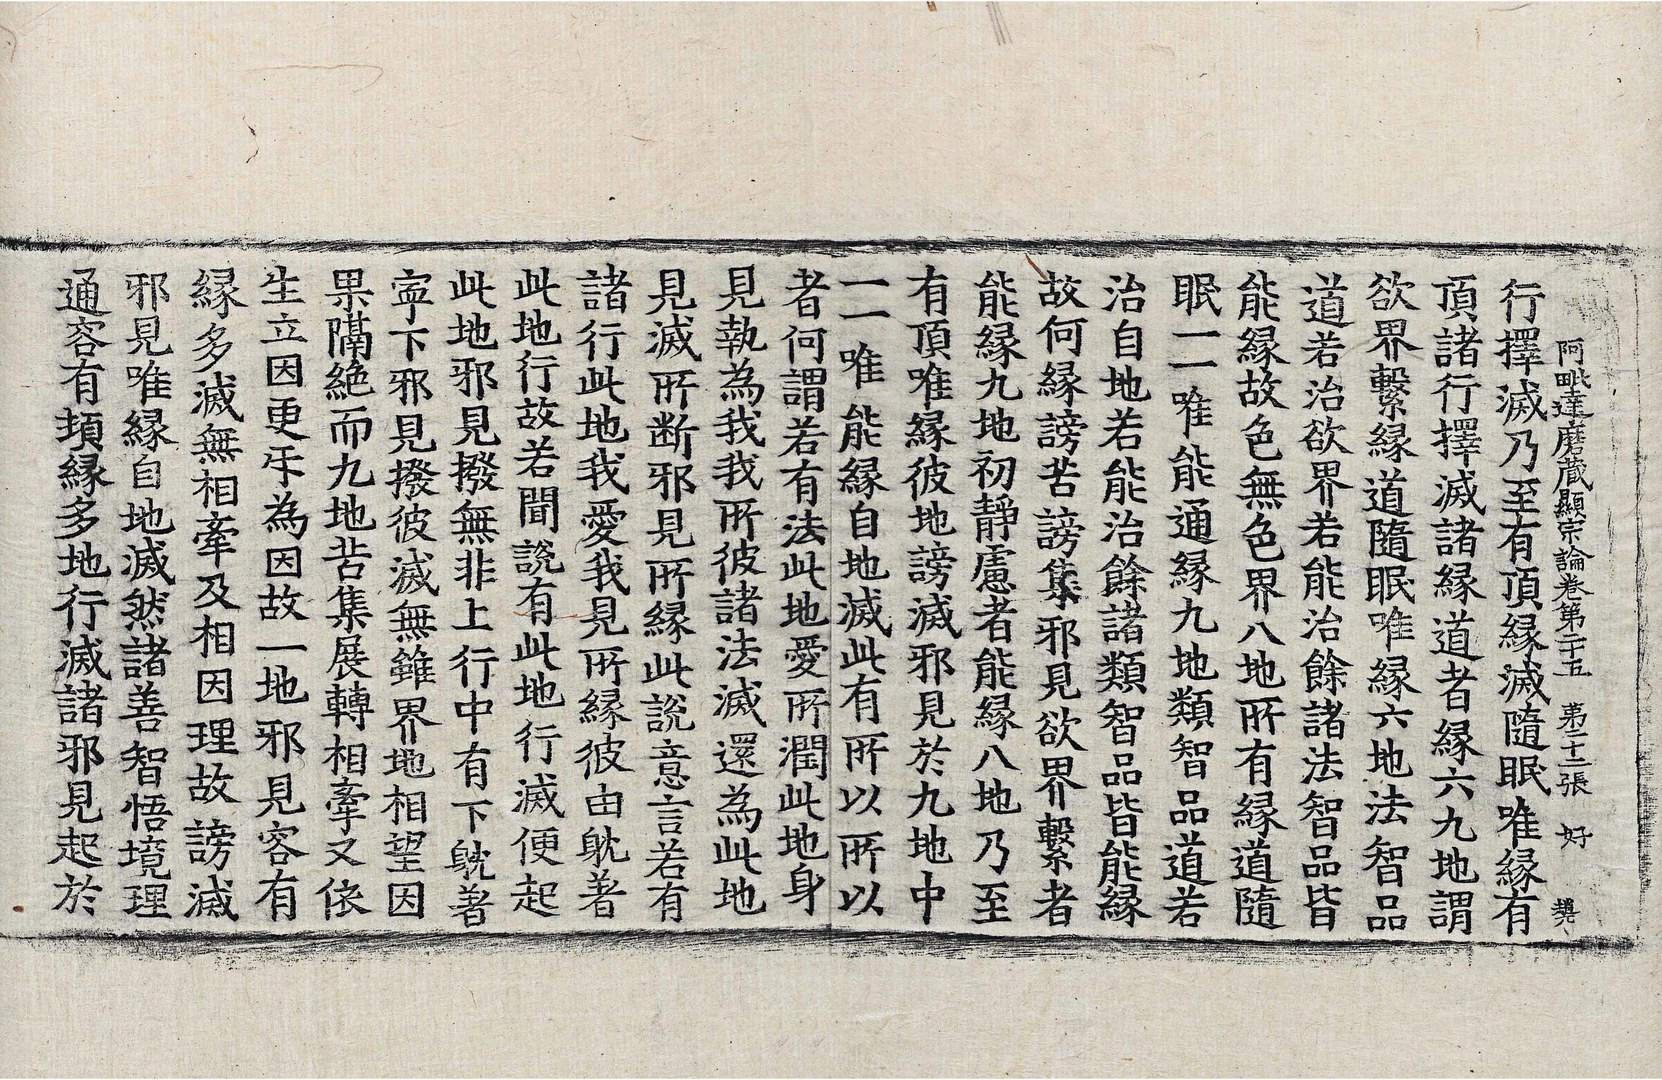 阿毗達磨藏顯宗論卷第二十五 第二十二張 好
行擇滅乃至有頂緣滅隨眠唯緣有
頂諸行擇滅諸緣道者緣六九地謂
欲界繫緣道隨眠唯緣六地法智品
道若治欲界若能治餘諸法智品皆
能緣故色無色界八地所有緣道隨
眠一一唯能通緣九地類智品道若
治自地若能治餘諸類智品皆能緣
故何緣謗苦謗集邪見欲界繫者
能緣九地初靜慮者能緣八地乃至
有頂唯緣彼地謗滅邪見於九地中
一一唯能緣自地滅此有所以所以
者何謂若有法此地愛所潤此地身
見執為我我所彼諸法滅還為此地
見滅所斷邪見所緣此說意言若有
諸行此地我愛我見所緣彼由躭著
此地行故若聞說有此地行滅便起
此地邪見撥無非上行中有下躭著
寧下邪見撥彼滅無雖界地相望因
果隔絕而九地苦集展轉相牽又依
生立因更㸦為因故一地邪見容有
緣多滅無相牽及相因理故謗滅
邪見唯緣自地滅然諸善智悟境理
通容有頓緣多地行滅諸邪見起於